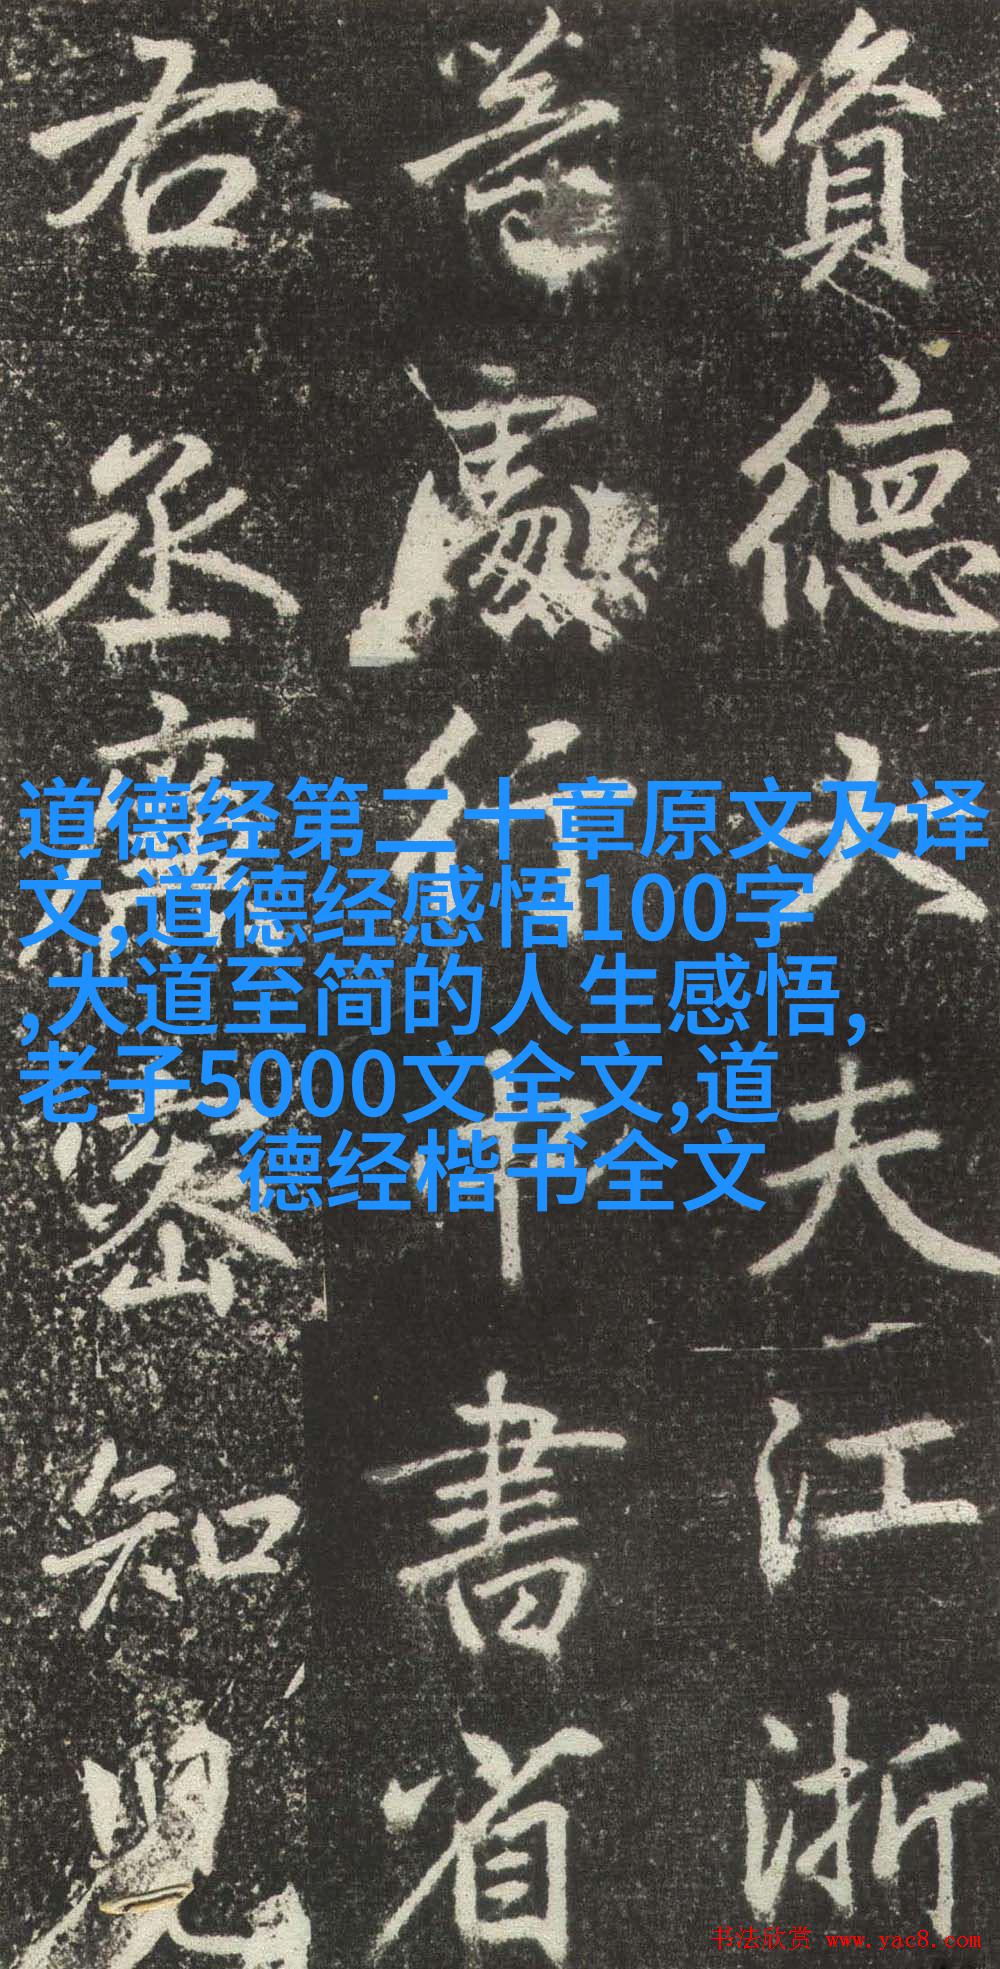 資德大夫江浙
等處行中書省
右丞
知
道德经第二十章原文及译
文,道德经感悟100字
,大道至简的人生感悟,
老子5000文全文,道
德经楷书全文
书法欣赏 www.yac8.com